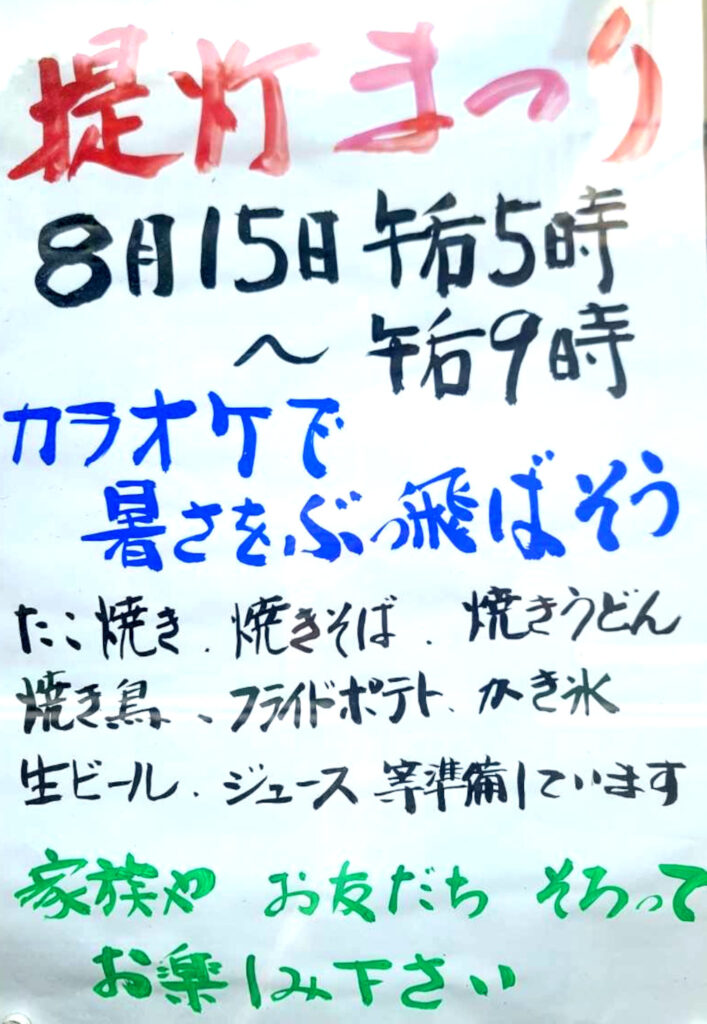 提灯まつり
8月15日 午后5時
～ 午后9時
カラオケで
暑さをぶっ飛ばそう
たこ焼き．焼きそば．焼きうどん
焼き鳥、フライドポテト．かき氷
生ビール．ジュース 等準備しています
家族や お友だち そろって
お楽しみ下さい